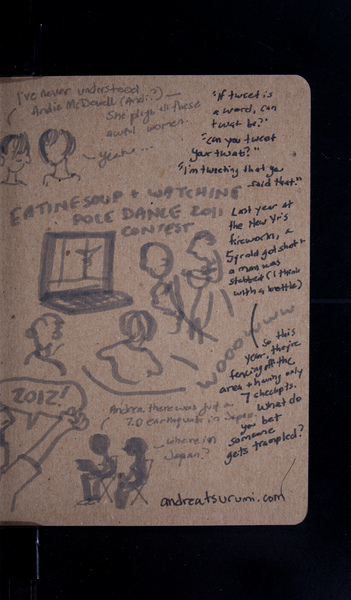 I've never understood
Andie McDowell (Andi?) —
She plays all these
awful women.
yeah...
"If tweet is
a word, can
twat be?"
"can you tweet
your twats?"
"I'm tweeting that you
said that."
EATING SOUP + WATCHING
POLE DANCE 2011
CONTEST
Last year at
the New Yr's
fireworks, a
5yr old got shot +
a man was
stabbed (I think
with a bottle)
WOOOWWW
So this
year, they're
fencing off the
area + having only
7 checkpts.
What do
you bet
someone
gets trampled?
2012!
Andrea, there was just a
7.0 earthquake in Japan.
where in
Japan?
andreatsurumi.com